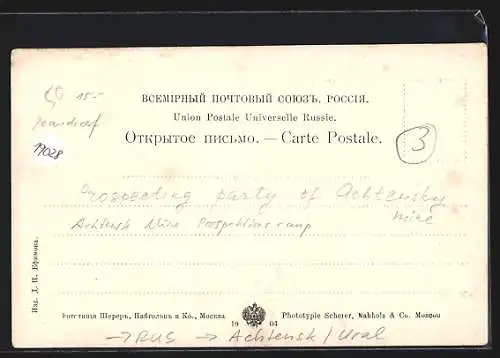 ВСЕМІРНЫЙ ПОЧТОВЫЙ СОЮЗЪ. РОССІЯ.
Union Postale Universelle Russie.
Открытое письмо. — Carte Postale.
15.-
17028
3
prospecting party of Achtensky
mine
Achtensk Mine Prospektions camp
Изд. Д. И. Ефимова.
Фототипія Шереръ, Набгольцъ и Ко., Москва
19 04
Phototypie Scherer, Nabholz & Co. Moscou
→ RUS → Achtensk / Ural